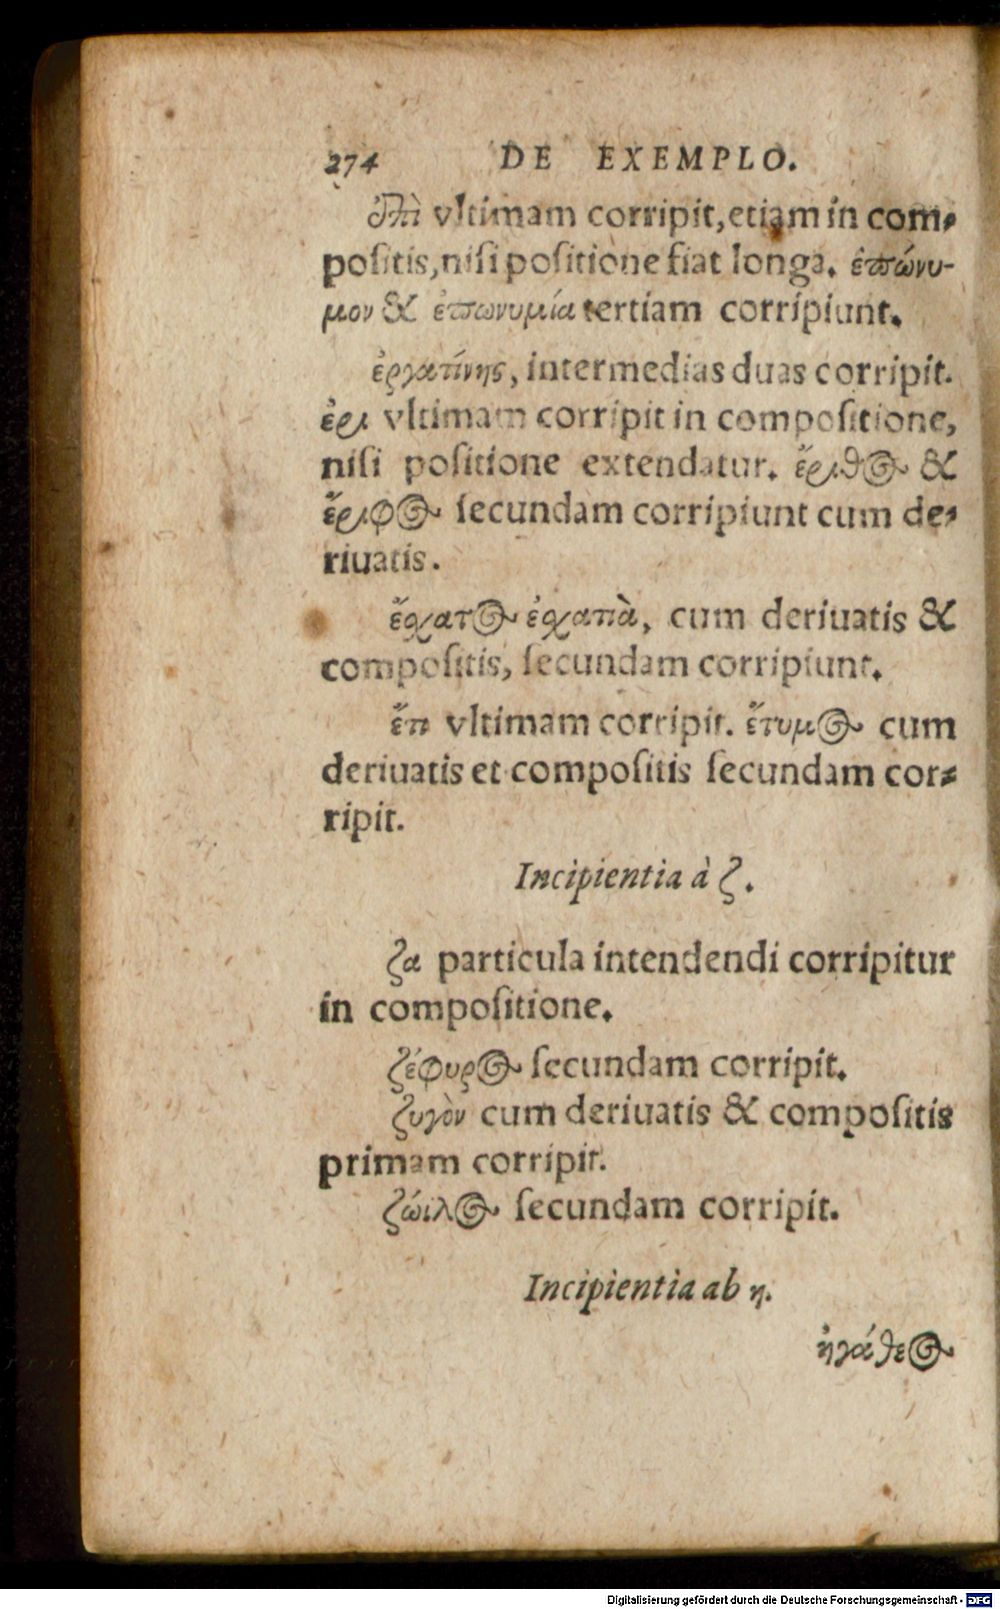 274 DE EXEMPLO.
ἐπὶ vltimam corripit, etiam in com-
poſitis, niſi poſitione fiat longa. ἐπώνυ-
μον & ἐπωνυμία tertiam corripiunt.
ἐργατίνης, intermedias duas corripit.
ἐρι vltimam corripit in compoſitione,
niſi poſitione extendatur. ἔριθος &
ἔριφος ſecundam corripiunt cum de-
riuatis.
ἔσχατος ἐσχατιὰ, cum deriuatis &
compoſitis, ſecundam corripiunt.
ἔτι vltimam corripit. ἔτυμος cum
deriuatis et compoſitis ſecundam cor-
ripit.
Incipientia à ζ.
ζα particula intendendi corripitur
in compoſitione.
ζέφυρος ſecundam corripit.
ζυγὸν cum deriuatis & compoſitis
primam corripit.
ζώιλος ſecundam corripit.
Incipientia ab η.
ἠγάθεος
Digitalisierung gefördert durch die Deutsche Forschungsgemeinschaft - DFG